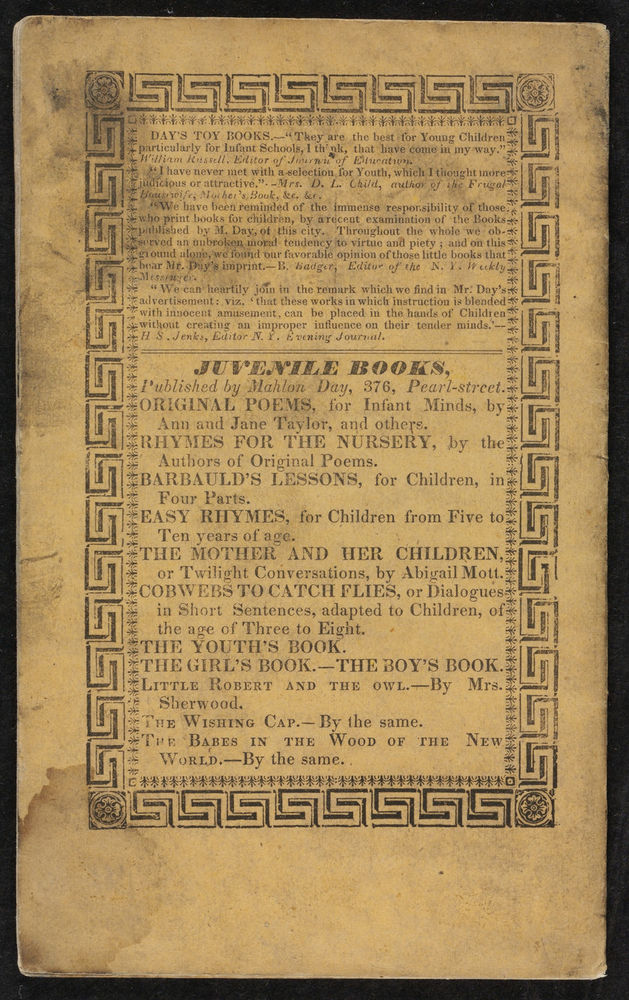 DAY'S TOY BOOKS.—"They are the best for Young Children
particularly for Infant Schools, I think, that have come in my way."
William Russell, Editor of Journal of Education.
"I have never met with a selection for Youth, which I thought more
judicious or attractive."—Mrs. D. L. Child, author of the Frugal
Housewife, Mother's Book, &c. &c.
"We have been reminded of the immense responsibility of those
who print books for children, by a recent examination of the Books
published by M. Day, of this city. Throughout the whole we ob-
served an unbroken moral tendency to virtue and piety; and on this
ground alone, we found our favorable opinion of those little books that
bear Mr. Day's imprint.—B. Badger, Editor of the N. Y. Weekly
Messenger.
"We can heartily join in the remark which we find in Mr. Day's
advertisement: viz. 'that these works in which instruction is blended
with innocent amusement, can be placed in the hands of Children
without creating an improper influence on their tender minds.'—
H S. Jenks, Editor N. Y. Evening Journal.
JUVENILE BOOKS,
Published by Mahlon Day, 376, Pearl-street.
ORIGINAL POEMS, for Infant Minds, by
Ann and Jane Taylor, and others.
RHYMES FOR THE NURSERY, by the
Authors of Original Poems.
BARBAULD'S LESSONS, for Children, in
Four Parts.
EASY RHYMES, for Children from Five to
Ten years of age.
THE MOTHER AND HER CHILDREN,
or Twilight Conversations, by Abigail Mott.
COBWEBS TO CATCH FLIES, or Dialogues
in Short Sentences, adapted to Children, of
the age of Three to Eight.
THE YOUTH'S BOOK.
THE GIRL'S BOOK.—THE BOY'S BOOK.
LITTLE ROBERT AND THE OWL.—By Mrs.
Sherwood.
THE WISHING CAP.—By the same.
THE BABES IN THE WOOD OF THE NEW
WORLD.—By the same.